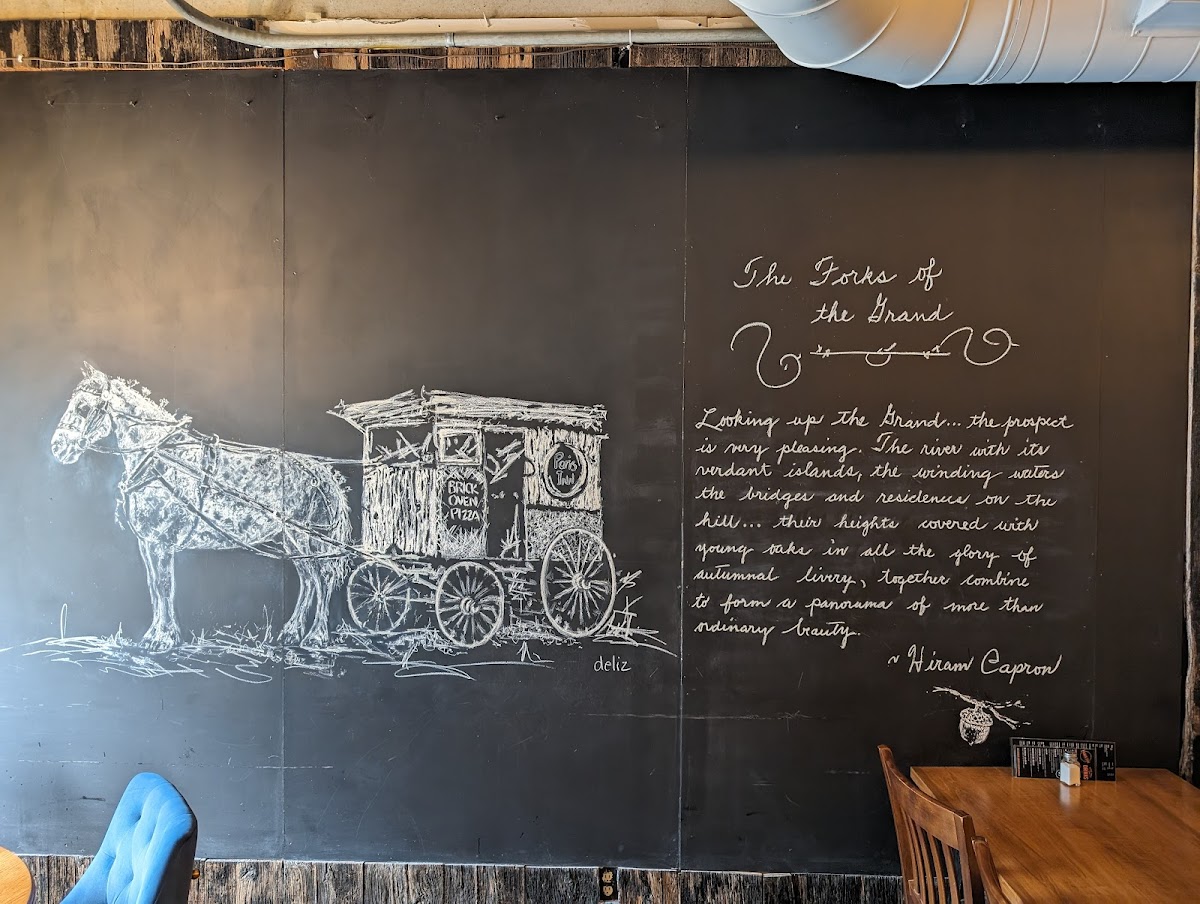 The Forks of
the Grand
Looking up the Grand... the prospect
is very pleasing. The river with its
verdant islands, the winding waters
the bridges and residences on the
hill... their heights covered with
young oaks in all the glory of
autumnal livery, together combine
to form a panorama of more than
ordinary beauty.
~ Hiram Capron
Paris
Inn
BRICK
OVEN
PIZZA
deliz